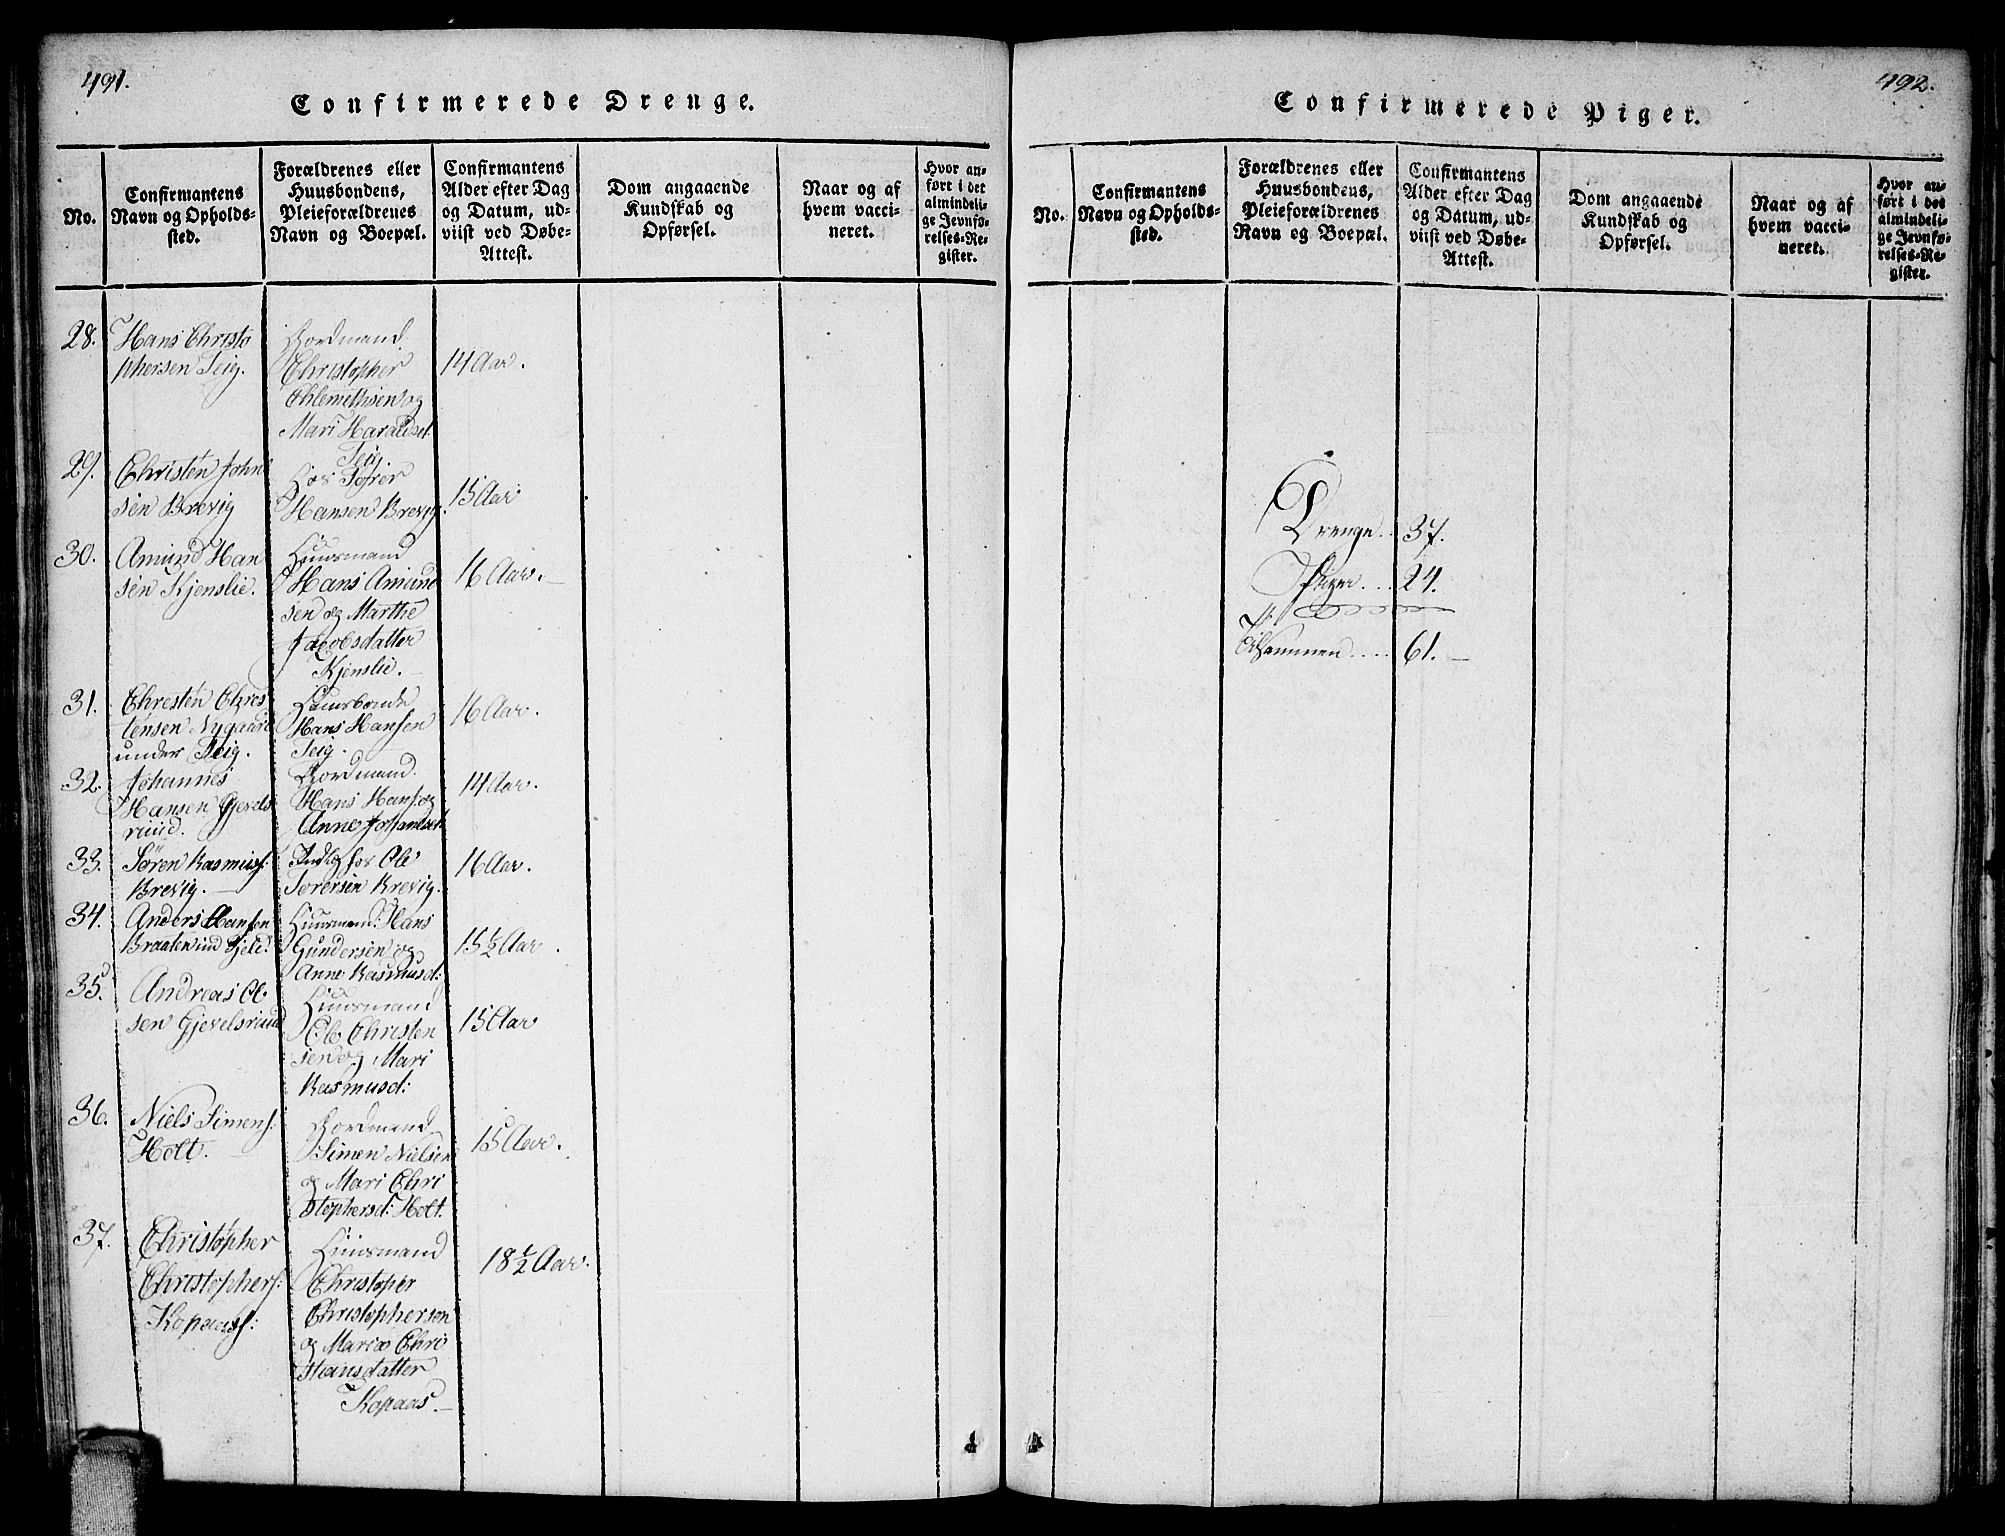 491.
Confirmerede Drenge.
No.
Confirmantens
Navn og Opholds-
sted.
Forældrenes eller
Huusbondens,
Pleieforældrenes
Navn og Boepæl.
Confirmantens
Alder efter Dag
og Datum, ud-
viist ved Døbe-
Attest.
Dom angaaende
Kundskab og
Opførsel.
Naar og af
hvem vacci-
neret.
Hvor an-
ført i det
almindeli-
ge Jevnfø-
relses-Re-
gister.
28.
Hans Christo
phersen Teig.
Gordmand
Christopher
Chlemethsen og
Mari Haraldsd.
Teig
14 Aar.
29.
Christen John
sen Brevig
hos Sofrer
Hansen Brevig.
15 Aar
30.
Amund Han
sen Kjenslie.
Huusmand
Hans Amund
sen og Marthe
Jacobsdatter
Kjenslie.
16 Aar.
31.
Chresten Chres
tensen Nygaard
under Teig.
Huusbonde
Hans Hansen
Teig.
16 Aar.
32.
Johannes
Hansen Gjevels
ruud.
Gordmand
Hans Hans. og
Anne Johansdt
14 Aar.
33.
Sören Rasmusf:
Brevig.
Indlg hos Ole
Sorensen Brevig.
16 Aar.
34.
Anders Hansen
Braaten und Gjele.
Huusmand: Hans
Gundersen og
Anne Rasmusd:
15 1/2 Aar.
35.
Andreas Ol
sen Gjevelsruud
Huusmand
Ole Christen
sen og Mari
Rasmusd:
15 Aar
36.
Niels Simens:
Holt.
Gordmand
Simen Nielsen
og Mari Chri
stophersd: Holt.
15 Aar.
37.
Christopher
Christophers:
Kopaas:
Huusmand
Christoper
Christophersen
og Maria Chri
stiansdatter
Kopaas.
18 1/2 Aar.
492.
Confirmerede Piger.
No.
Confirmantens
Navn og Opholds-
sted.
Forældrenes eller
Huusbondens,
Pleieforældrenes
Navn og Boepæl.
Confirmantens
Alder efter Dag
og Datum, ud-
viist ved Døbe-
Attest.
Dom angaaende
Kundskab og
Opførsel.
Naar og af
hvem vacci-
neret.
Hvor an-
ført i det
almindeli-
ge Jevnfø-
relses-Re-
gister.
Drenge.. 37.
Piger.... 24.
Tilsammen.... 61.